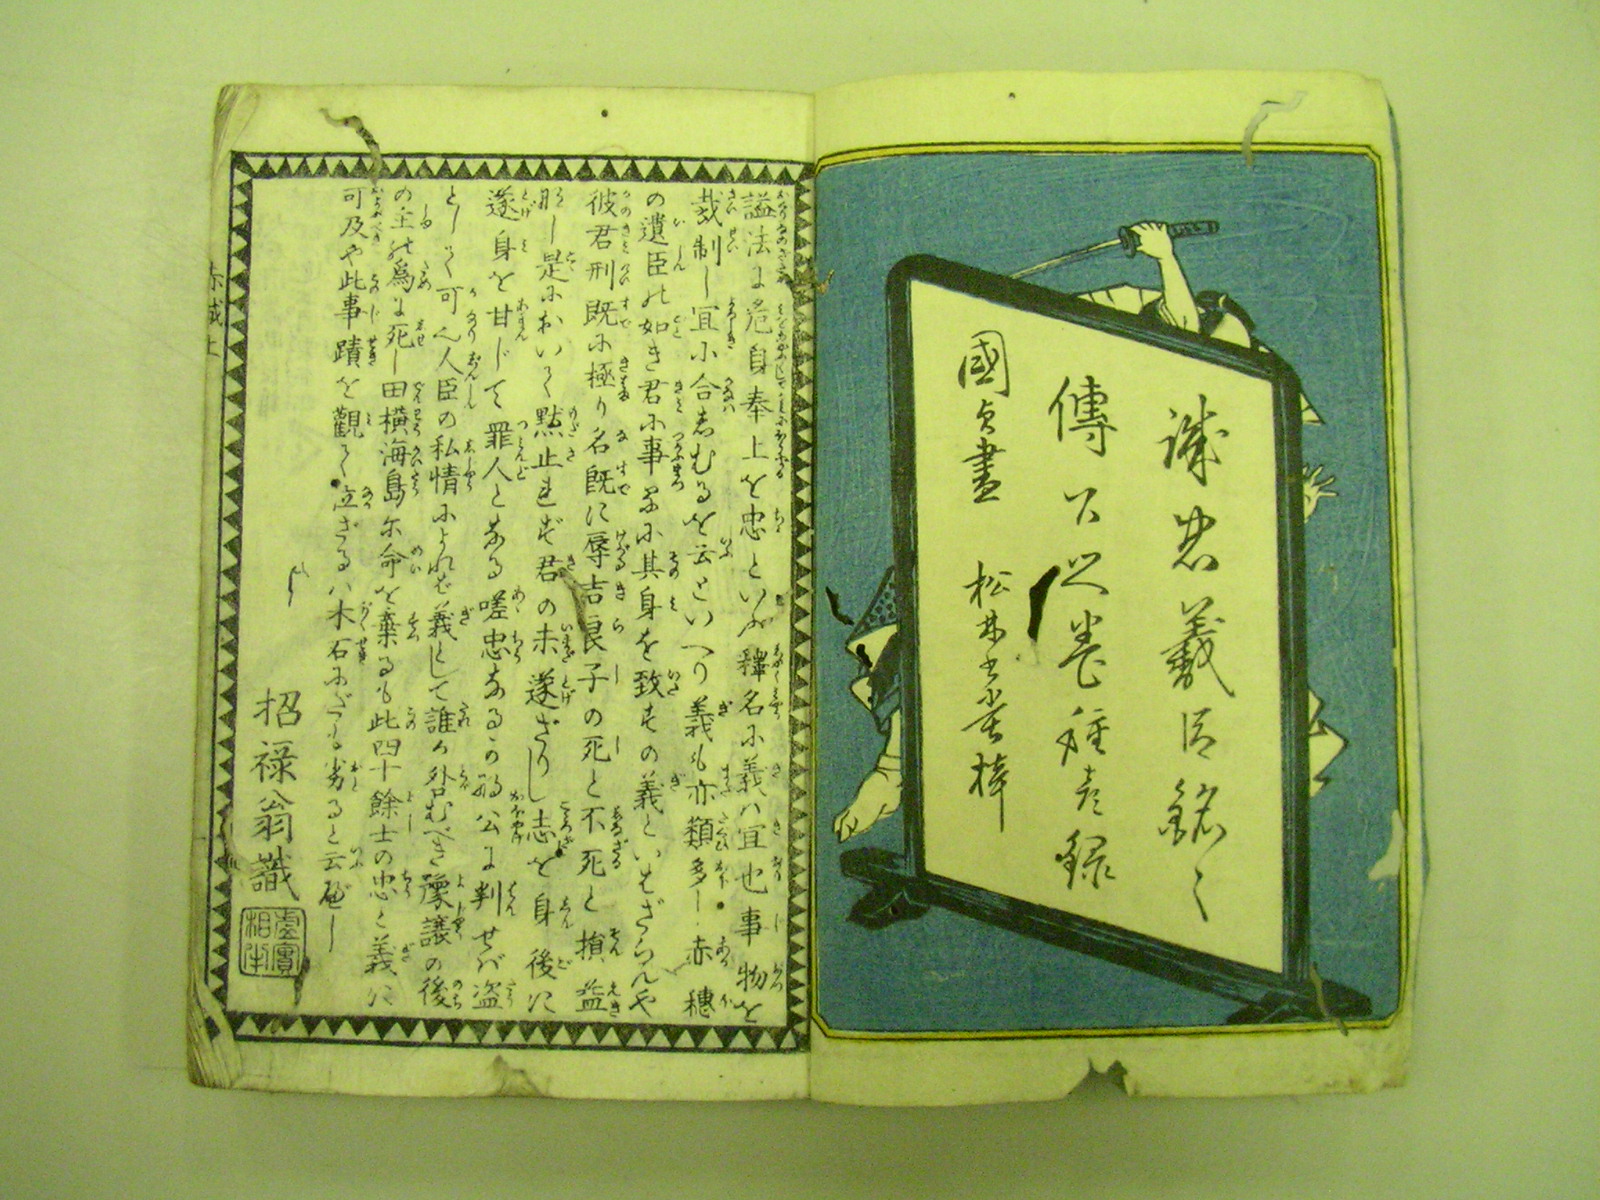 誠忠義臣銘々
傳
國貞畫
謚法に危身奉上を忠といふ釋名に義ハ宜也事物を
裁制し宜に合しむるを云といへり義も亦類多し赤穗
の遺臣の如き君に事るに其身を致すの義といはざらんや
彼君刑既に極り名既に辱吉良子の死と不死と損益
是においく黙止れず君の未遂ざりし志を身後に
遂身を甘じて罪人となる嗟忠なる公に判せバ盗
可人臣の私情によれば義として誰か咎むべき豫讓の後
の主の為に死し田横海島に命を棄るも此四十餘士の忠と義に
可及や此事蹟を觀て泣ざるハ木石にだも劣ると云べし
招禄翁識
赤城上